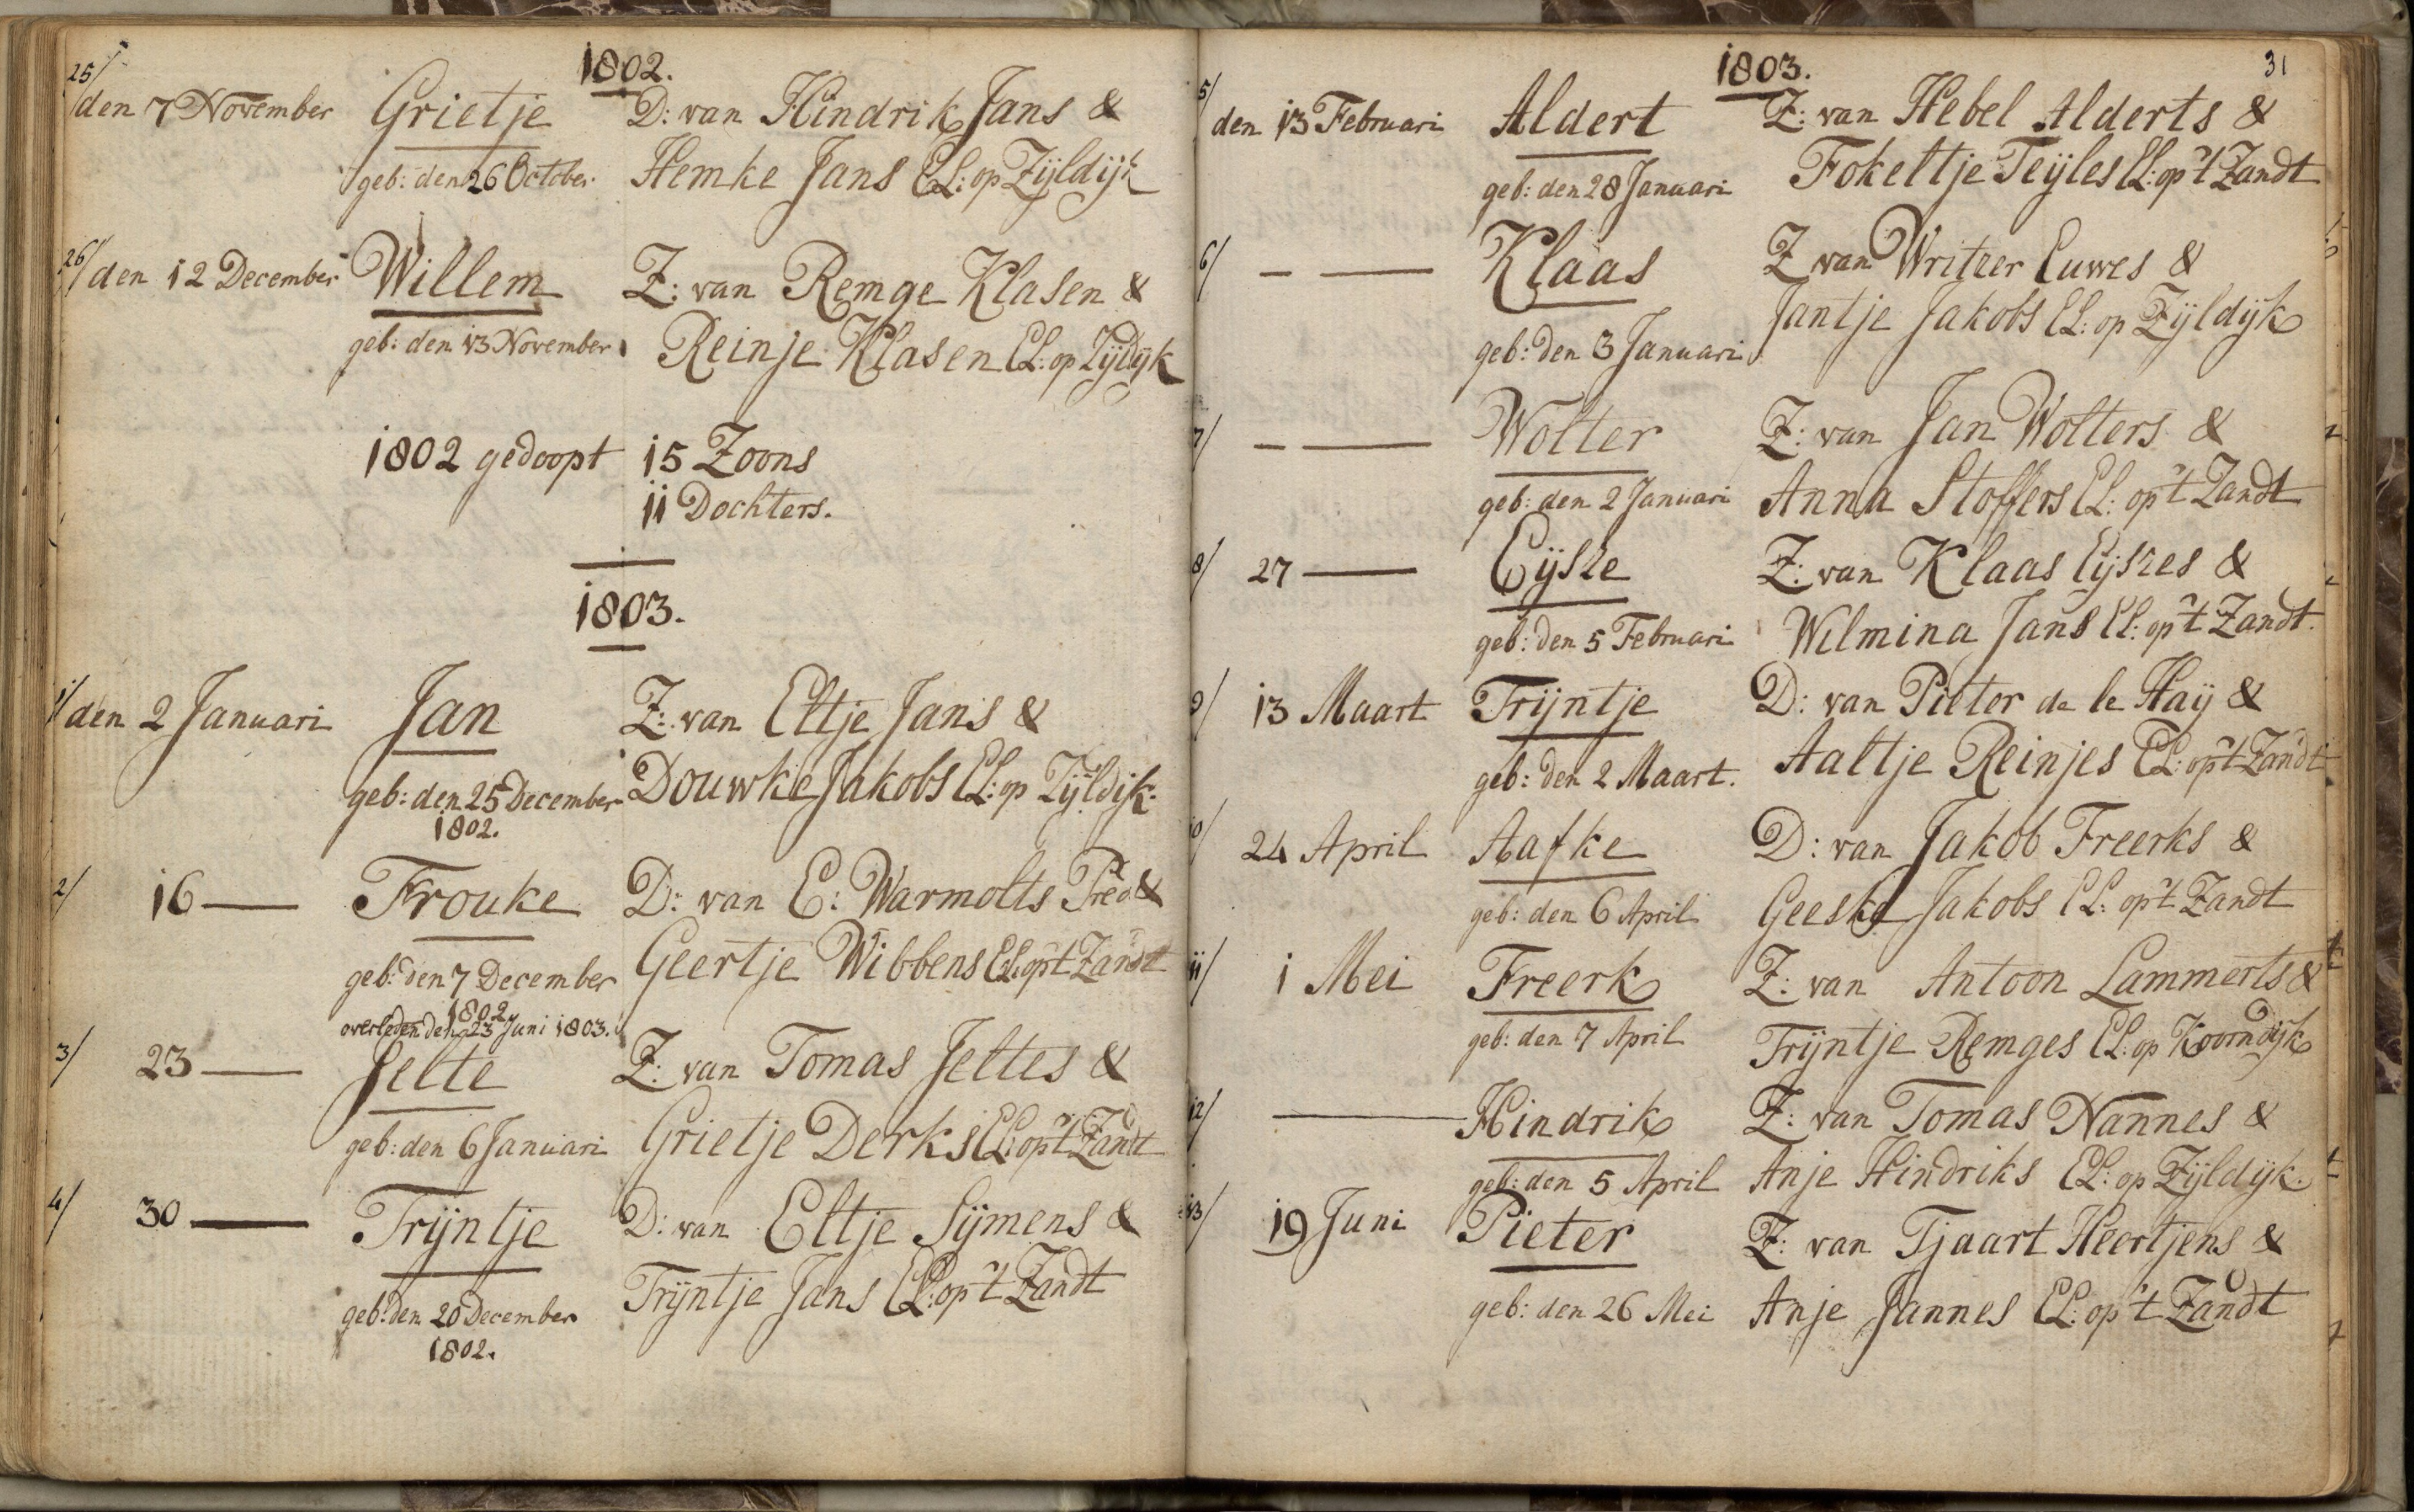 1802.
25/ den 7 November Grietje D: van Hindrik Jans &
geb: den 26 October Hemke Jans EL: op Zijldijk
26/ den 12 December Willem Z: van Remge Klasen &
geb: den 13 November Reinje Klasen EL: op Zijldijk
1802 gedoopt 15 Zoons
11 Dochters.
1803.
1/ den 2 Januari Jan Z: van Eltje Jans &
geb: den 25 December Douwke Jakobs EL: op Zijldijk.
1802.
2/ 16 — Frouke D: van E: Warmolts Pred &
geb: den 7 December Geertje Wibbens EL: op 't Zandt
1802.
overleden den 23 Juni 1803.
3/ 23 — Jelte Z: van Tomas Jeltes &
geb: den 6 Januari Grietje Derks EL: op 't Zandt
4/ 30 — Trijntje D: van Eltje Sijmens &
geb: den 20 December Trijntje Jans EL: op 't Zandt
1802.
31
1803.
5/ den 13 Februari Aldert Z: van Hebel Alderts &
geb: den 28 Januari Fokeltje Teijles EL: op 't Zandt
6/ — — Klaas Z van Writser Euwes &
geb: den 3 Januari Jantje Jakobs EL: op Zijldijk
7/ — — Wolter Z: van Jan Wolters &
geb: den 2 Januari Anna Stoffers EL: op 't Zandt
8/ 27 — Eijsse Z: van Klaas Eijsses &
geb: den 5 Februari Wilmina Jans EL: op 't Zandt.
9/ 13 Maart Trijntje D: van Pieter de le Haij &
geb: den 2 Maart. Aaltje Reinjes EL: op 't Zandt
10/ 24 April Aafke D: van Jakob Freerks &
geb: den 6 April Geeske Jakobs EL: op 't Zandt
11/ 1 Mei Freerk Z: van Antoon Lammerts &
geb: den 7 April Trijntje Remges EL: op Koorndijk
12/ — Hindrik Z: van Tomas Nannes &
geb: den 5 April Anje Hindriks EL: op Zijldijk.
13/ 19 Juni Pieter Z: van Tjaart Heertjens &
geb: den 26 Mei Anje Jannes EL: op 't Zandt